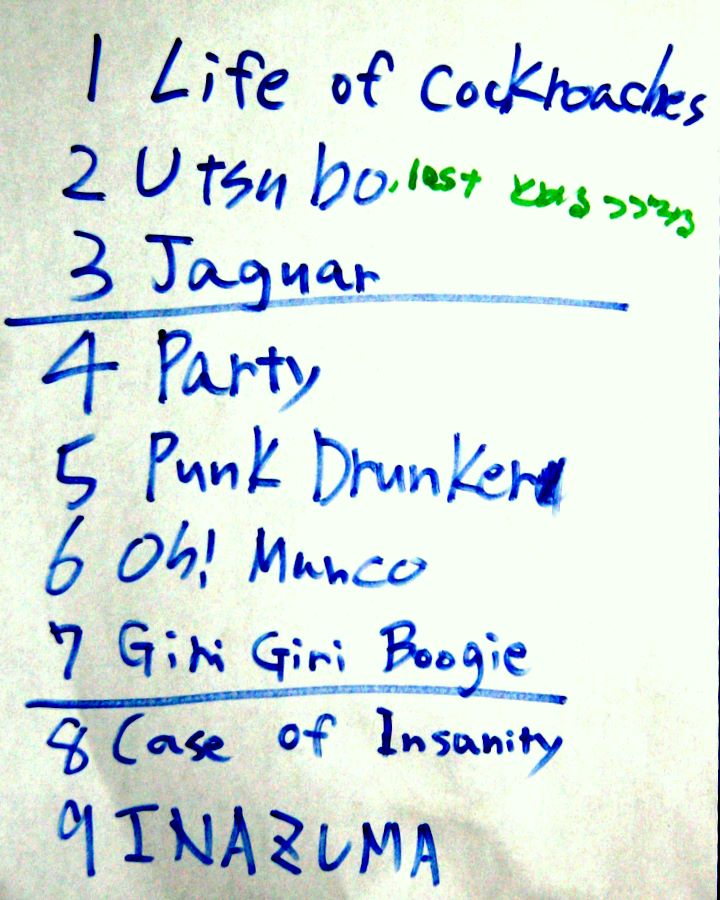 1 Life of Cockroaches
2 Utsubo. last
3 Jaguar
4 Party
5 Punk Drunker
6 Oh! Munco
7 Giri Giri Boogie
8 Case of Insanity
9 INAZUMA